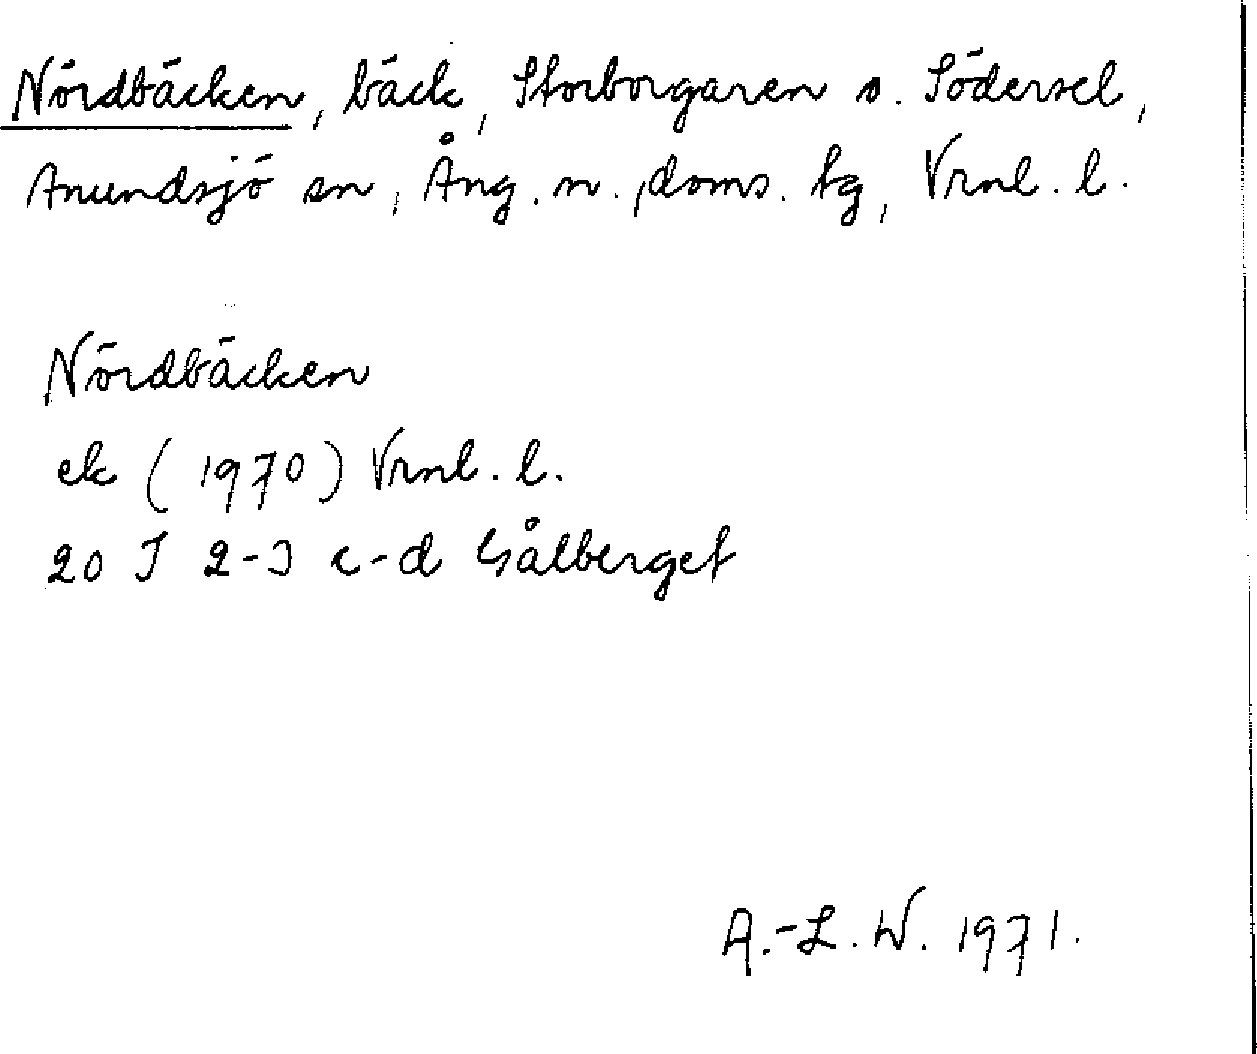 Nördbäcken, bäck, Storborgaren o. Södersel,
Anundsjö sn, Ång. n., doms. tg, Vrnl. l.
Nördbäcken
ek (1970) Vrnl. l.
20 I 2-3 c-d Gålberget
A.-L. W. 1971.